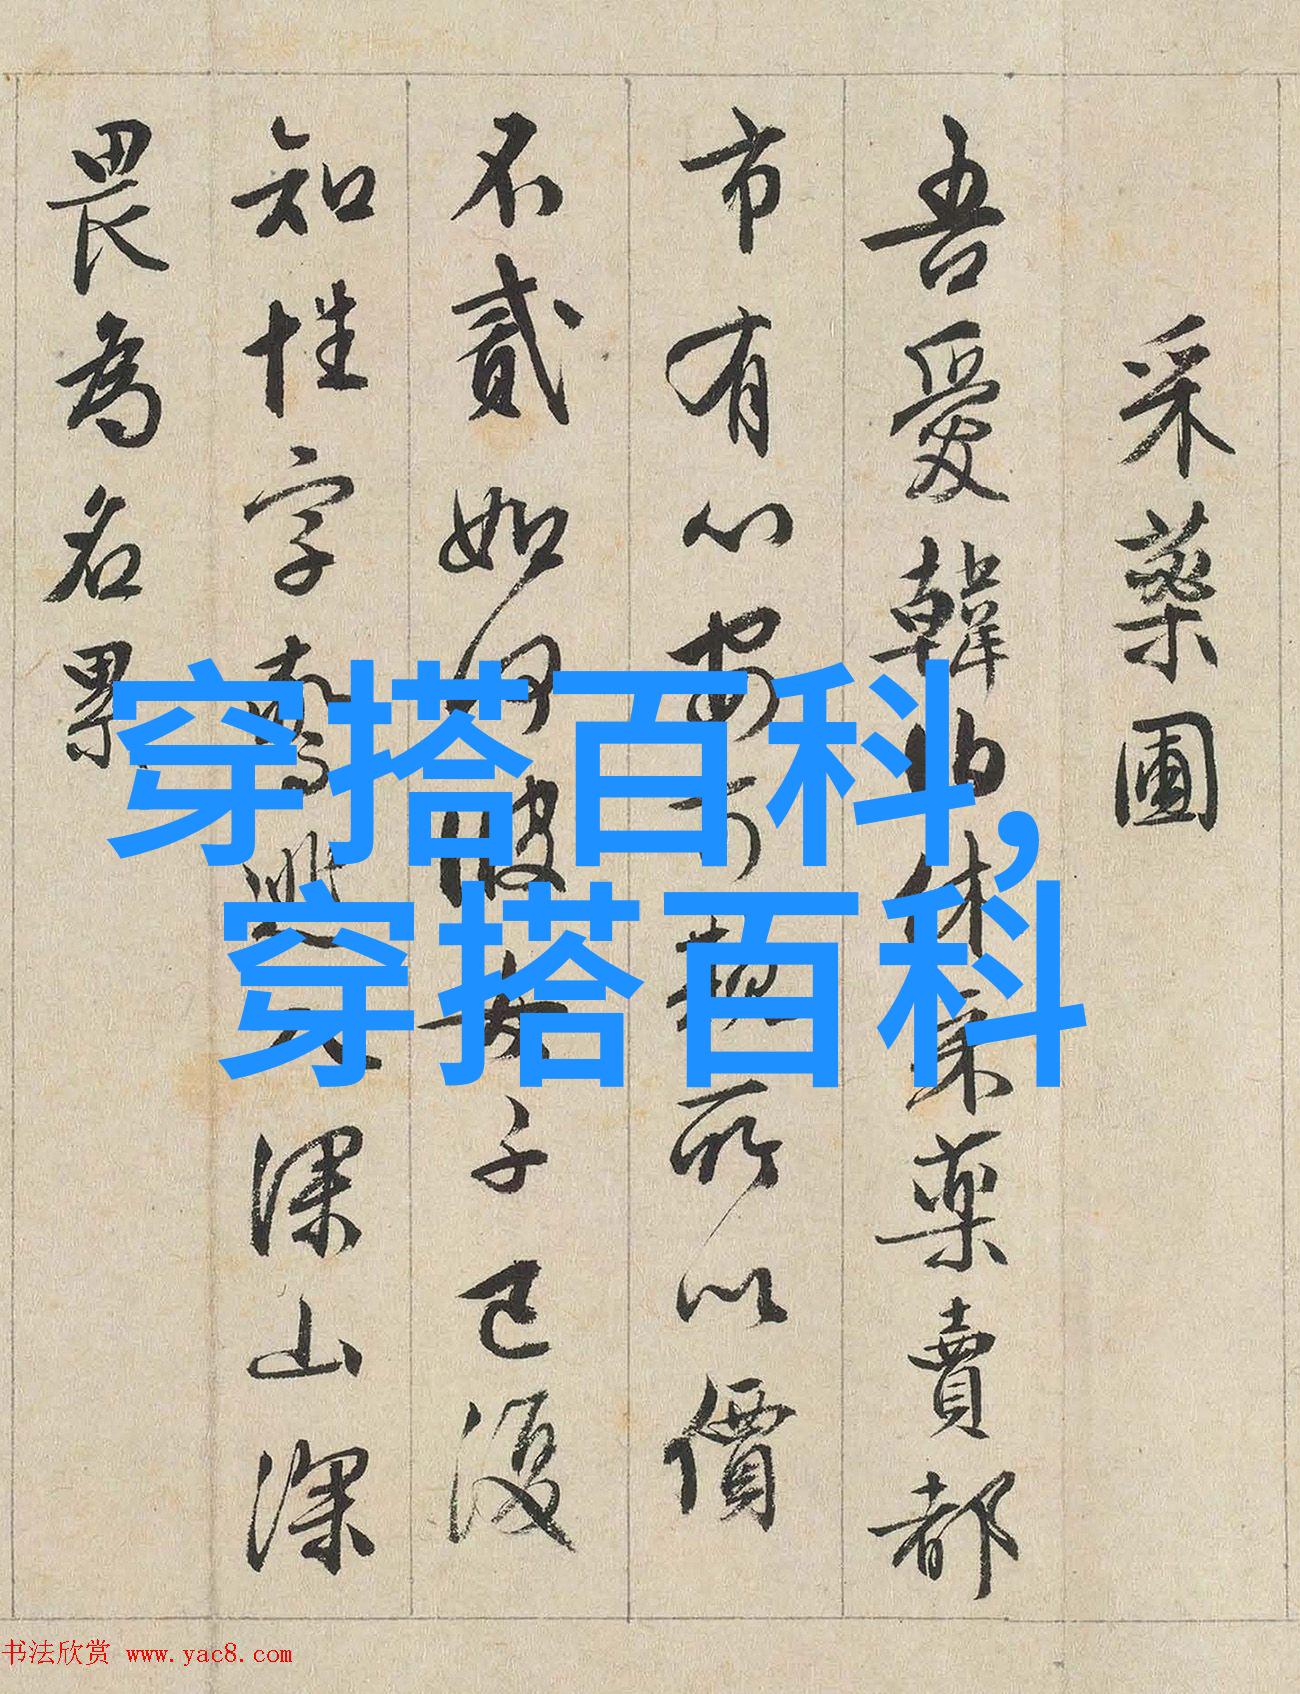 采藥圃
吾愛韓伯休采藥賣都
市有心安可欺所以價
不貳如何彼女子已復
知姓字驚逃入深山深
畏為名累
穿搭百科,
穿搭百科
书法欣赏 www.yac8.com